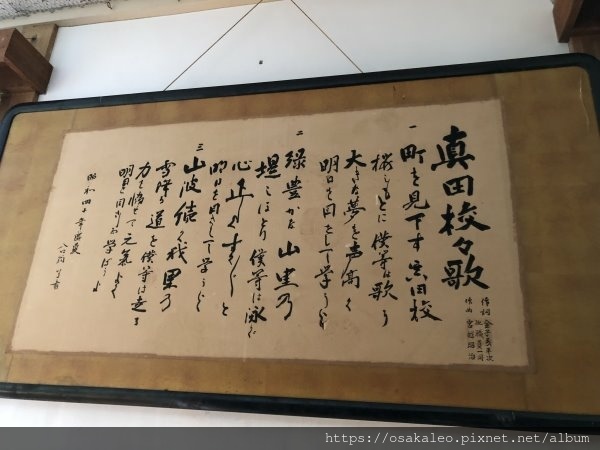 真田校々歌
作詞 金子
作曲 宮
一 町を見下す真田校
桜のもとに僕等は歌う
大きな夢を声高く
明日を目ざして学うよ
二 緑豊かな山里の
堤に 僕等は泳ぐ
心正しくすくすくと
明日を目ざして学うよ
三 山波続く我里の
雪降る道を僕等は走る
力を 元気よく
明日を目ざし学ぼうよ
昭和四十年
https://osakaleo.pixnet.net/album